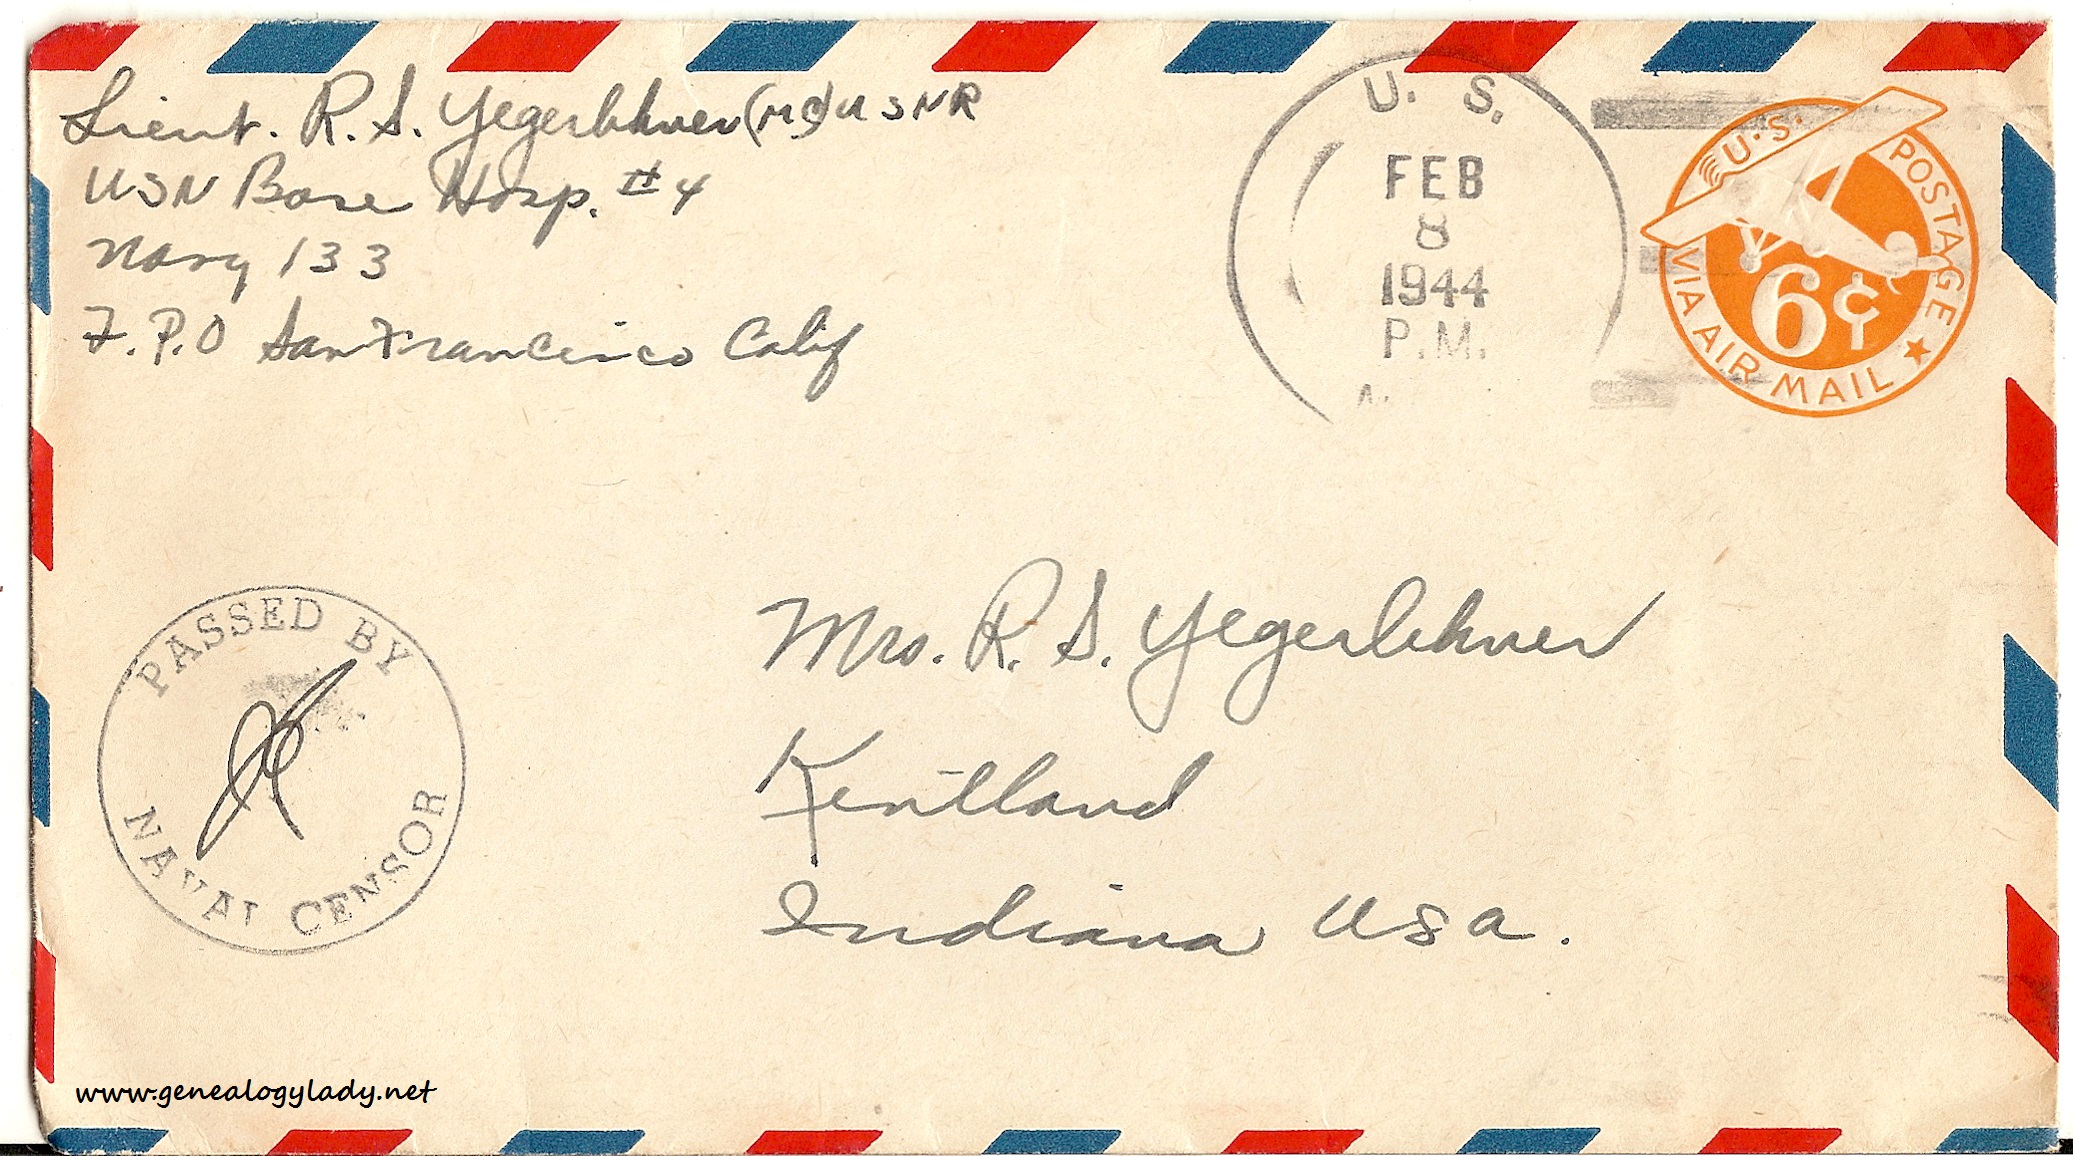 Lieut. R. S. Yegerlehner (MC) USNR
USN Base Hosp. #4
Navy 133
F.P.O San Francisco Calif
U. S.
FEB
8
1944
P.M.
U.S. POSTAGE
6¢
VIA AIR MAIL
PASSED BY
NAVAL CENSOR
Mrs. R. S. Yegerlehner
Kentland
Indiana USA.
www.genealogylady.net